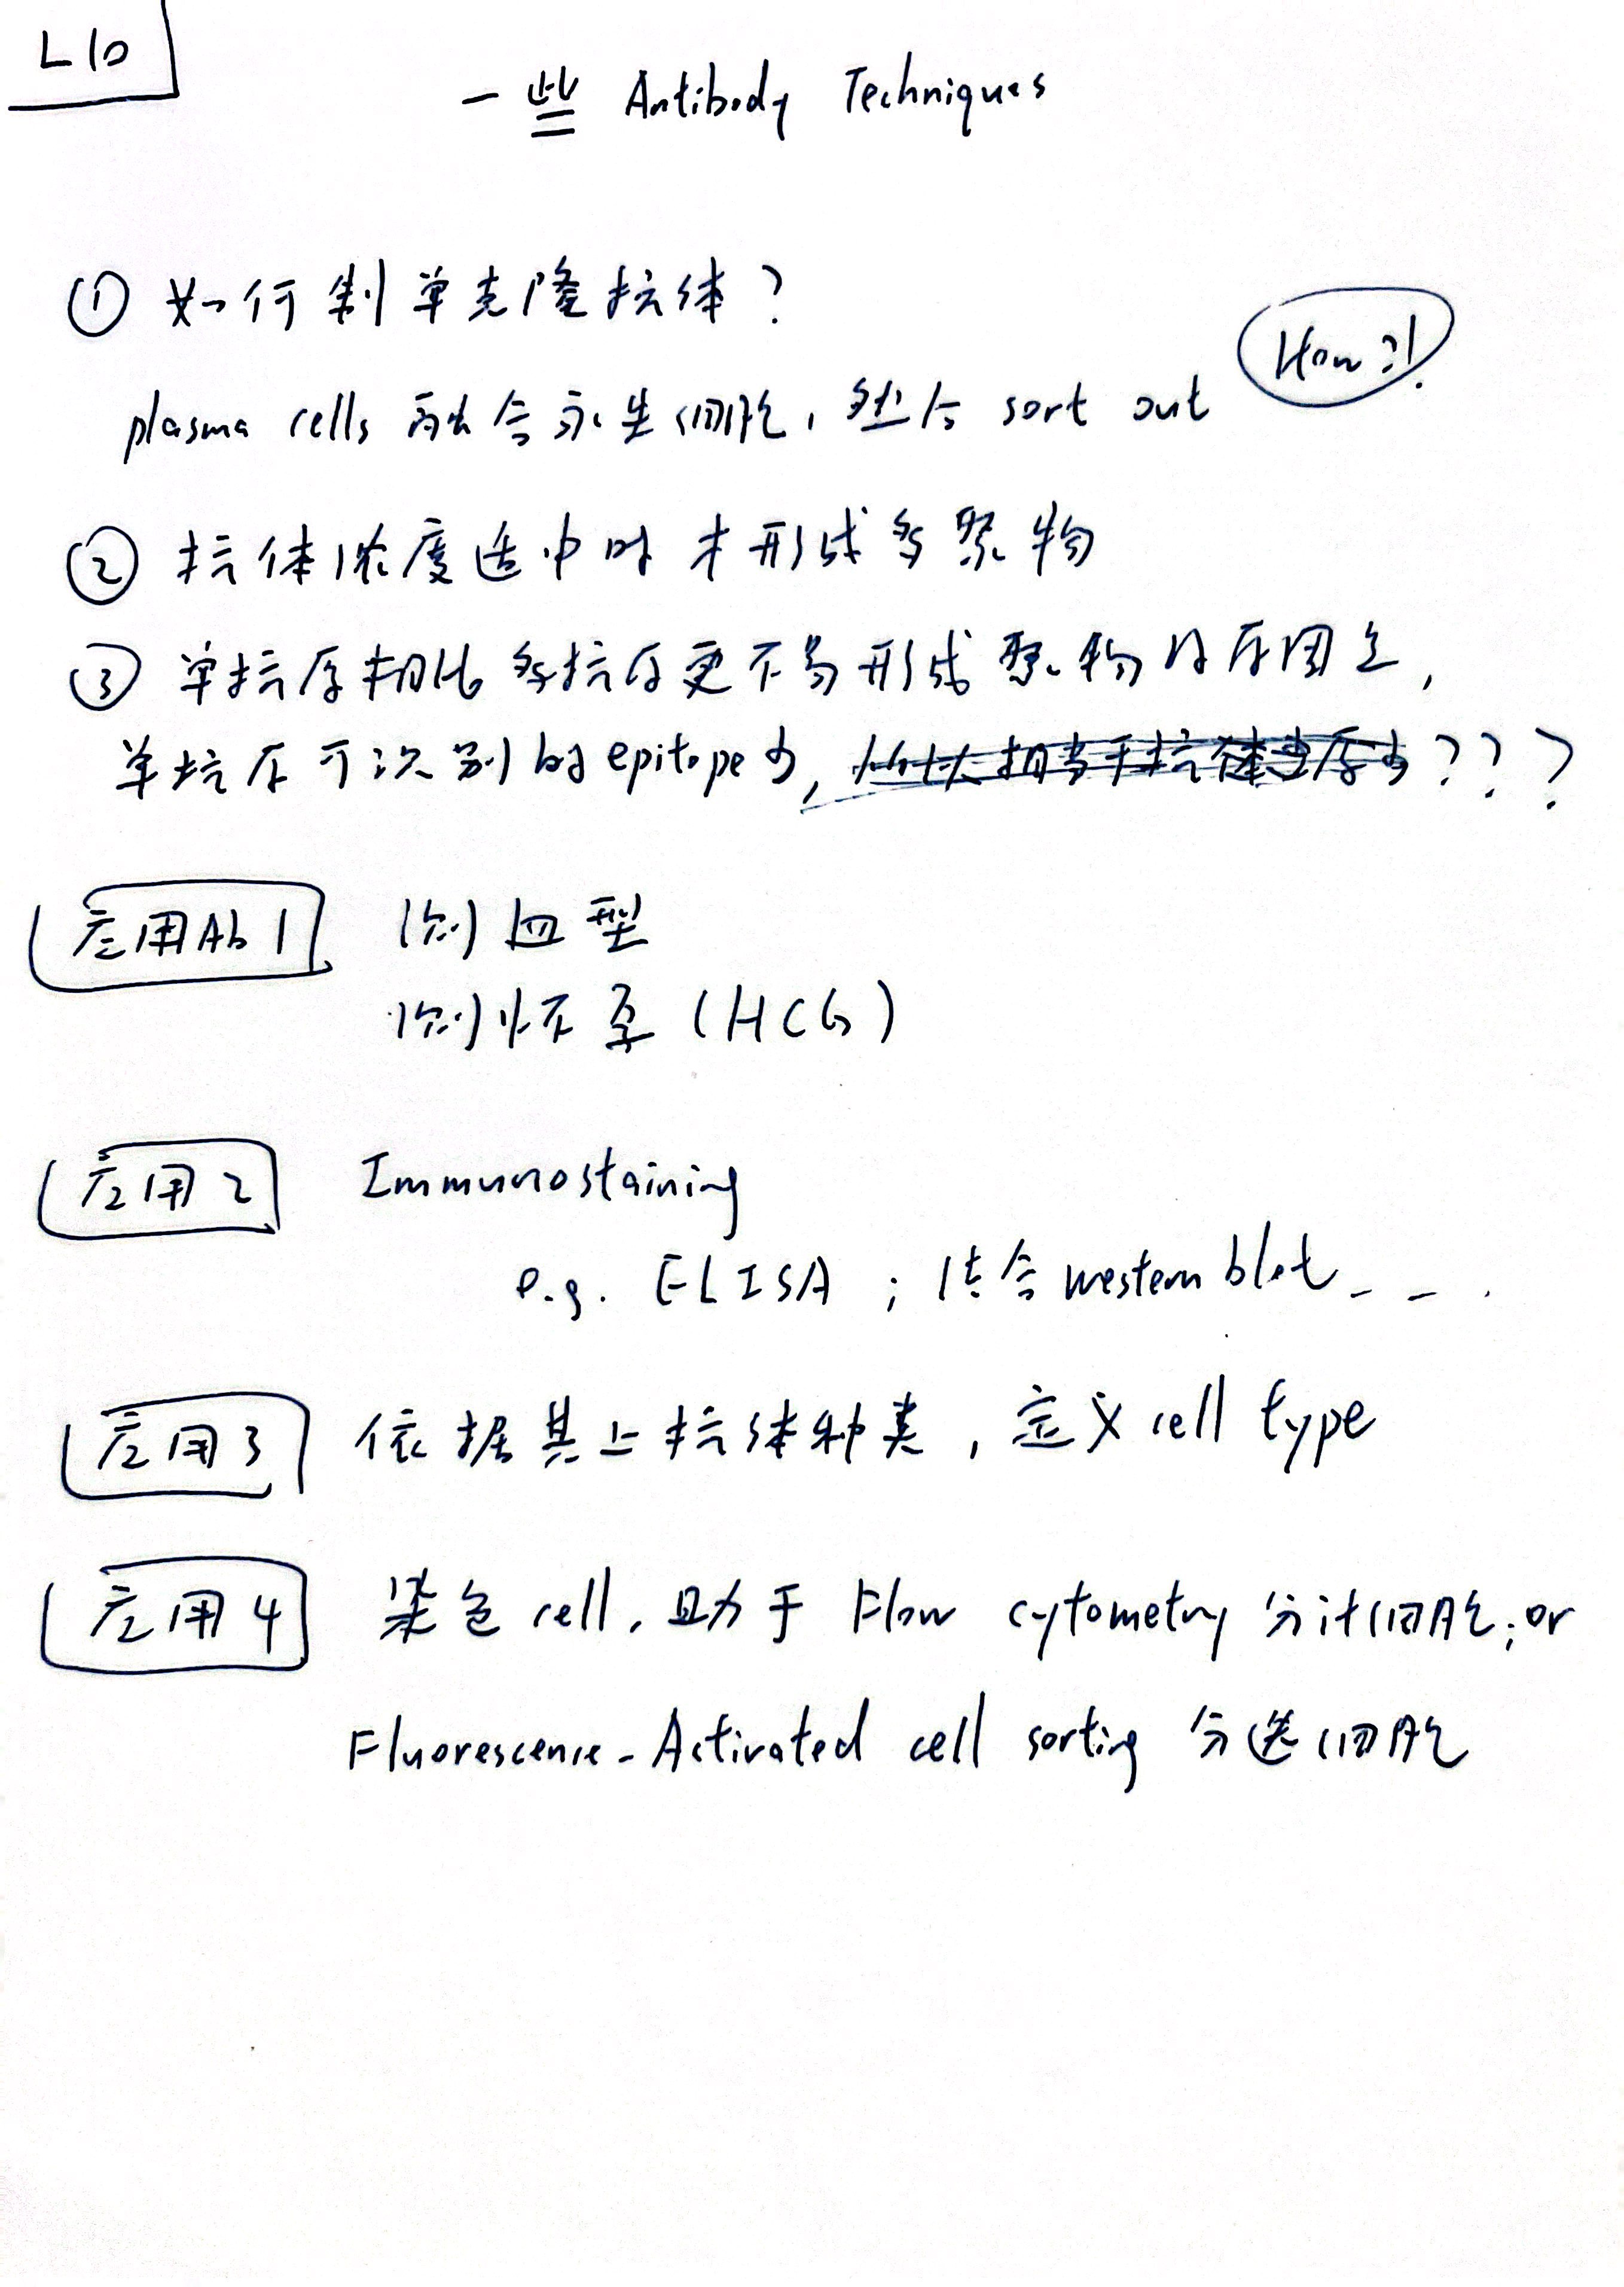 L10
一些 Antibody Techniques
① 如何制单克隆抗体？
How ?!
plasma cells 融合永生细胞，然后 sort out
② 抗体浓度适中时才形成多聚物
③ 单抗原相比多抗原更不易形成聚物的原因是，
单抗原可识别的epitope少，所以相当于抗体 原少？？？
应用Ab 1
测血型
测怀孕 (HCG)
应用 2
Immunostaining
e.g. ELISA ; 结合 western blot - - .
应用 3
依据其上抗体种类，定义 cell type
应用 4
染色 cell，助于 Flow cytometry 分计细胞; or
Fluorescence-Activated cell sorting 分选细胞